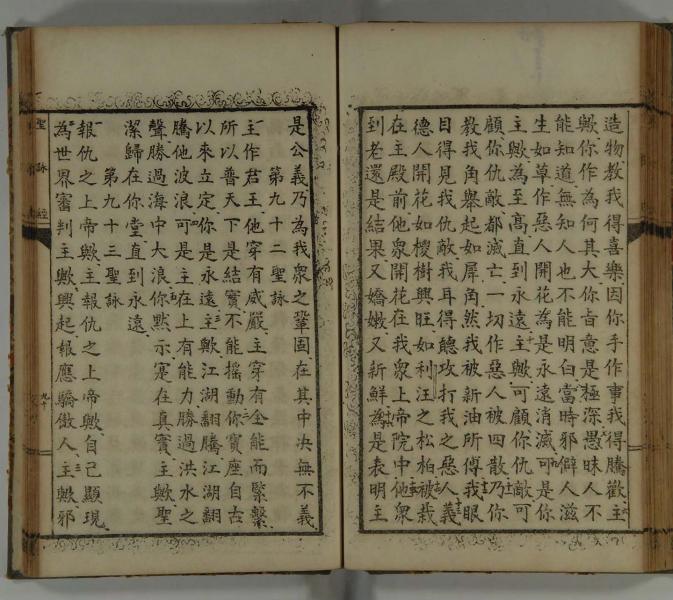 造物教我得喜樂因你手作事我得騰歡主
歟你作為何其大你㫖意是極深愚昧人不
能知道無知人也不能明白當時邪僻人滋
生如草作惡人開花為是永遠消滅可是你
主歟為至髙直到永遠主歟可顧你仇敵可
顧你仇敵都滅亡一切作惡人被四散乃你
教我角舉起如犀角然我被新油所傅我眼
目得見我仇敵我耳得聽攻打我之惡人義
德人開花如椶樹興旺如利汪之松柏被栽
在主殿前他衆開花在我衆上帝院中他衆
到老還是結果又嬌嫩又新鮮為是表明主
是公義乃為我衆之鞏固在其中决無不義
第九十二聖詠
主作君王他穿有威嚴主穿有全能而緊繫
所以普天下是結實不能摇動你寳座自古
以來立定你是永遠主歟江湖翻騰江湖翻
騰他波浪可是主在上有能力勝過洪水之
聲勝過海中大浪你黙示寔在真實主歟聖
潔歸在你堂直到永遠
第九十三聖詠
報仇之上帝歟主報仇之上帝歟自己顯現
為世界審判主歟興起報應驕傲人主歟邪
聖詠經
九十